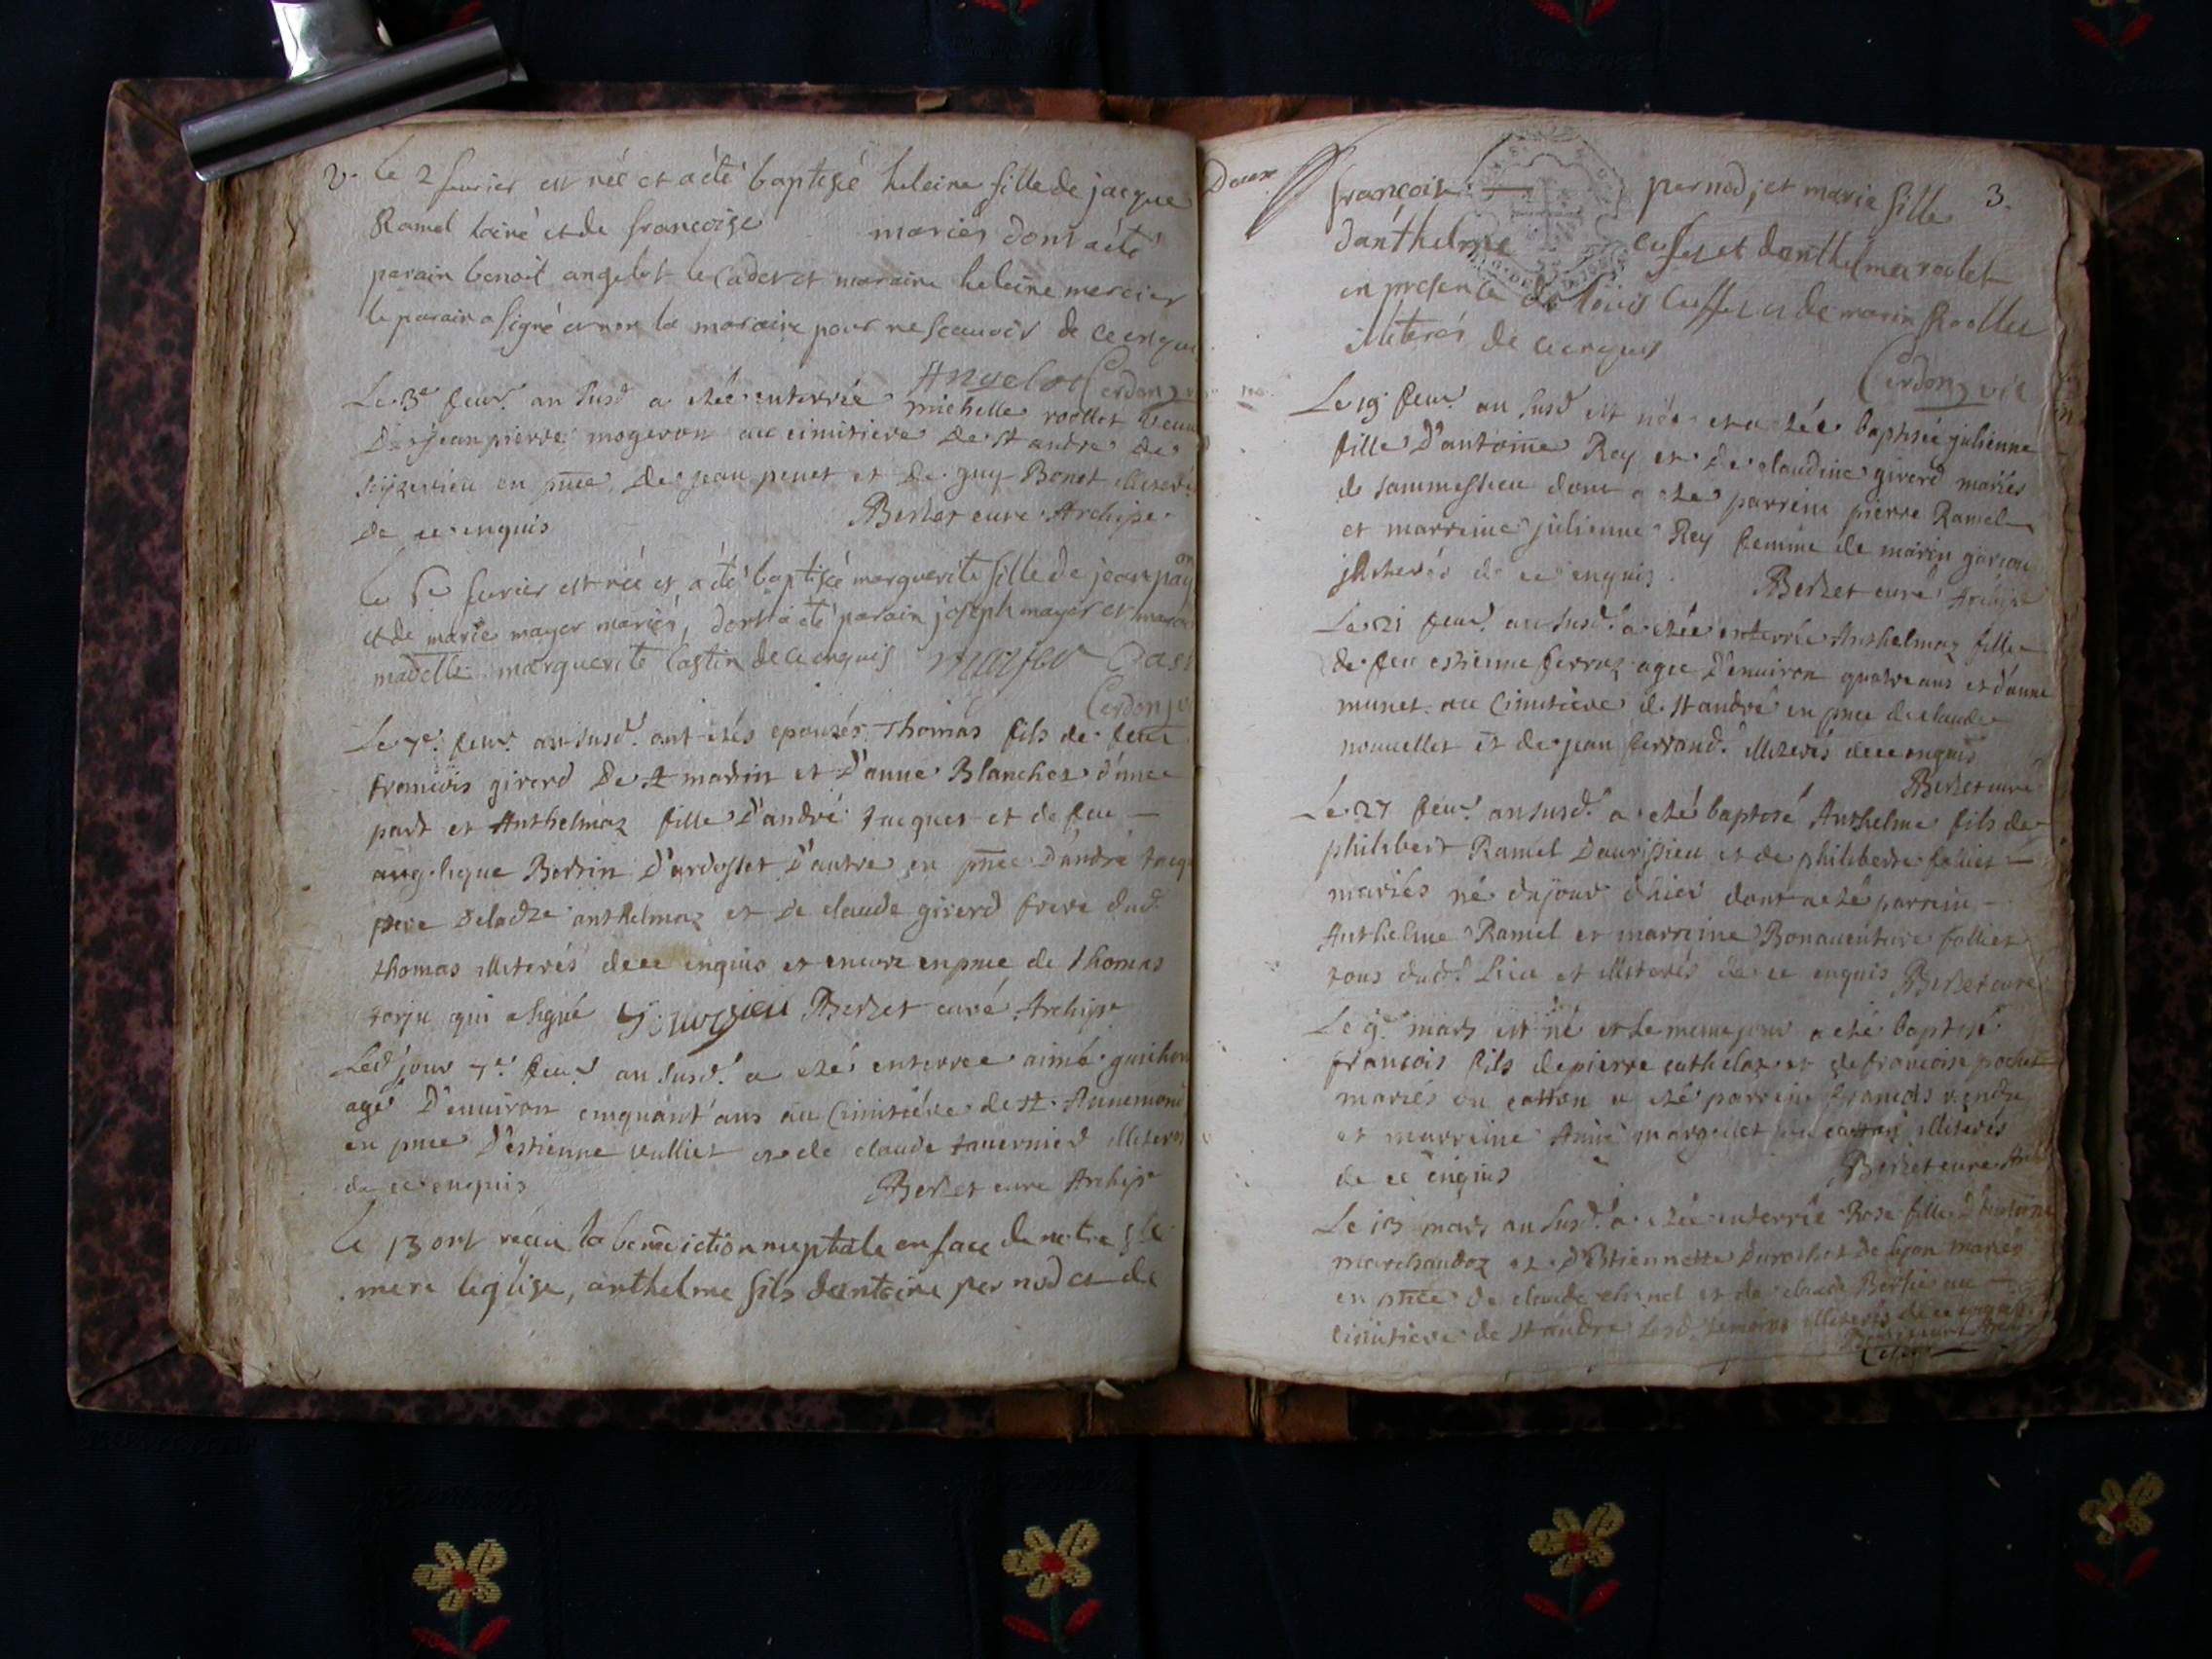 2.
Le 2 feurier est née et a été baptisé heleine fille de jacque
Ramel lainé et de francoise mariés dont a été
parain benoit angelot le Cadet et maraine heleine mercier
le parain a signé et non la maraine pour ne scauoir de ce enquis
Angelot Cerdon
Le 3e feur. an susd a etée enterrée michelle roollet veuue
De jean pierre mogeron au cimitiere De st andre De
en pnce De jean penet et De guy Bonet illiterés
De ce enquis Berlet cure Archipr
Le feurier est née et a été baptisé marguerite fille de jean
et de marie mayer mariés, dont a été parain joseph mayer et
madelle marguerite Castin de ce enquis mayer Cas
Cerdon
Le 7e. feur. an susd. ont etés epousés Thomas fils de feu
francois girerd De st martin et D'anne Blanchet d'une
part et Anthelmaz fille D'andré Jacquet et de feu
angelique Bertin D'ardosset D'autre en pnce D'andré
pere Deladte anthelmaz et De claude girerd frere dud.
thomas illiterés de ce enquis et encore en pnce de Thomas
qui a signé Berlet curé Archipr
Led jour 7e. feur an susd. a eté enterree aimé guichon
agé D'enuiron cinquant'ans au Cimitiére de st. Annemond
en pnce D'estienne vulliet et de claude tauernier illiterés
de ce enquis Berlet cure Archipr
Le 13 ont receu la benediction nuptiale en face de notre Ste
mere leglise, anthelme fils dantoine pernod et de
Deux 3.
francoise pernod, et marie fille
danthelme cusset et danthelma rolet
en presence de louis Cusset et de marin Roollet
illiterés de ce enquis Cerdon vic
Le 19 feur an susd est née et a etée baptisée julienne
fille D'antoine Rey et De claudine girerd mariés
de sammessieu dont a eté parrein pierre Ramel
et marreine julienne Rey femme de marin
illiterés de ce enquis Berlet curé Archipr
Le 21 feur. an susd. a etée enterrée Anthelmaz fille
de feu estienne ferraz agee D'enuiron quatre ans et d'anne
munet au Cimitiere de st andré en pnce de claude
nouuellet et de jean ferrand. illiterés de ce enquis
Berlet curé
Le 27 feur. an susd. a eté baptisé Anthelme fils de
philibert Ramel D'aurissieu et de philiberte folliet
mariés né du jour d'hier dont a eté parrein
Anthelme Ramel et marreine Bonauenture folliet
tous dud. Lieu et illiterés de ce enquis Berlet curé
Le 9e mars est né et le meme jour a eté baptisé
francois fils de pierre cathelaz et de francoise pochet
mariés en cotton a eté parrein francois
et marreine Aimé illiterés
de ce enquis Berlet cure Arch
Le 13 mars an susd. a etée enterrée Rose fille D'Antoine
marchandoz et D'Estiennette Durochat de lyon mariés
en pnce de claude chinel et de claude au
cimitiere de st andre Lesd. temoins illiterés de ce enquis